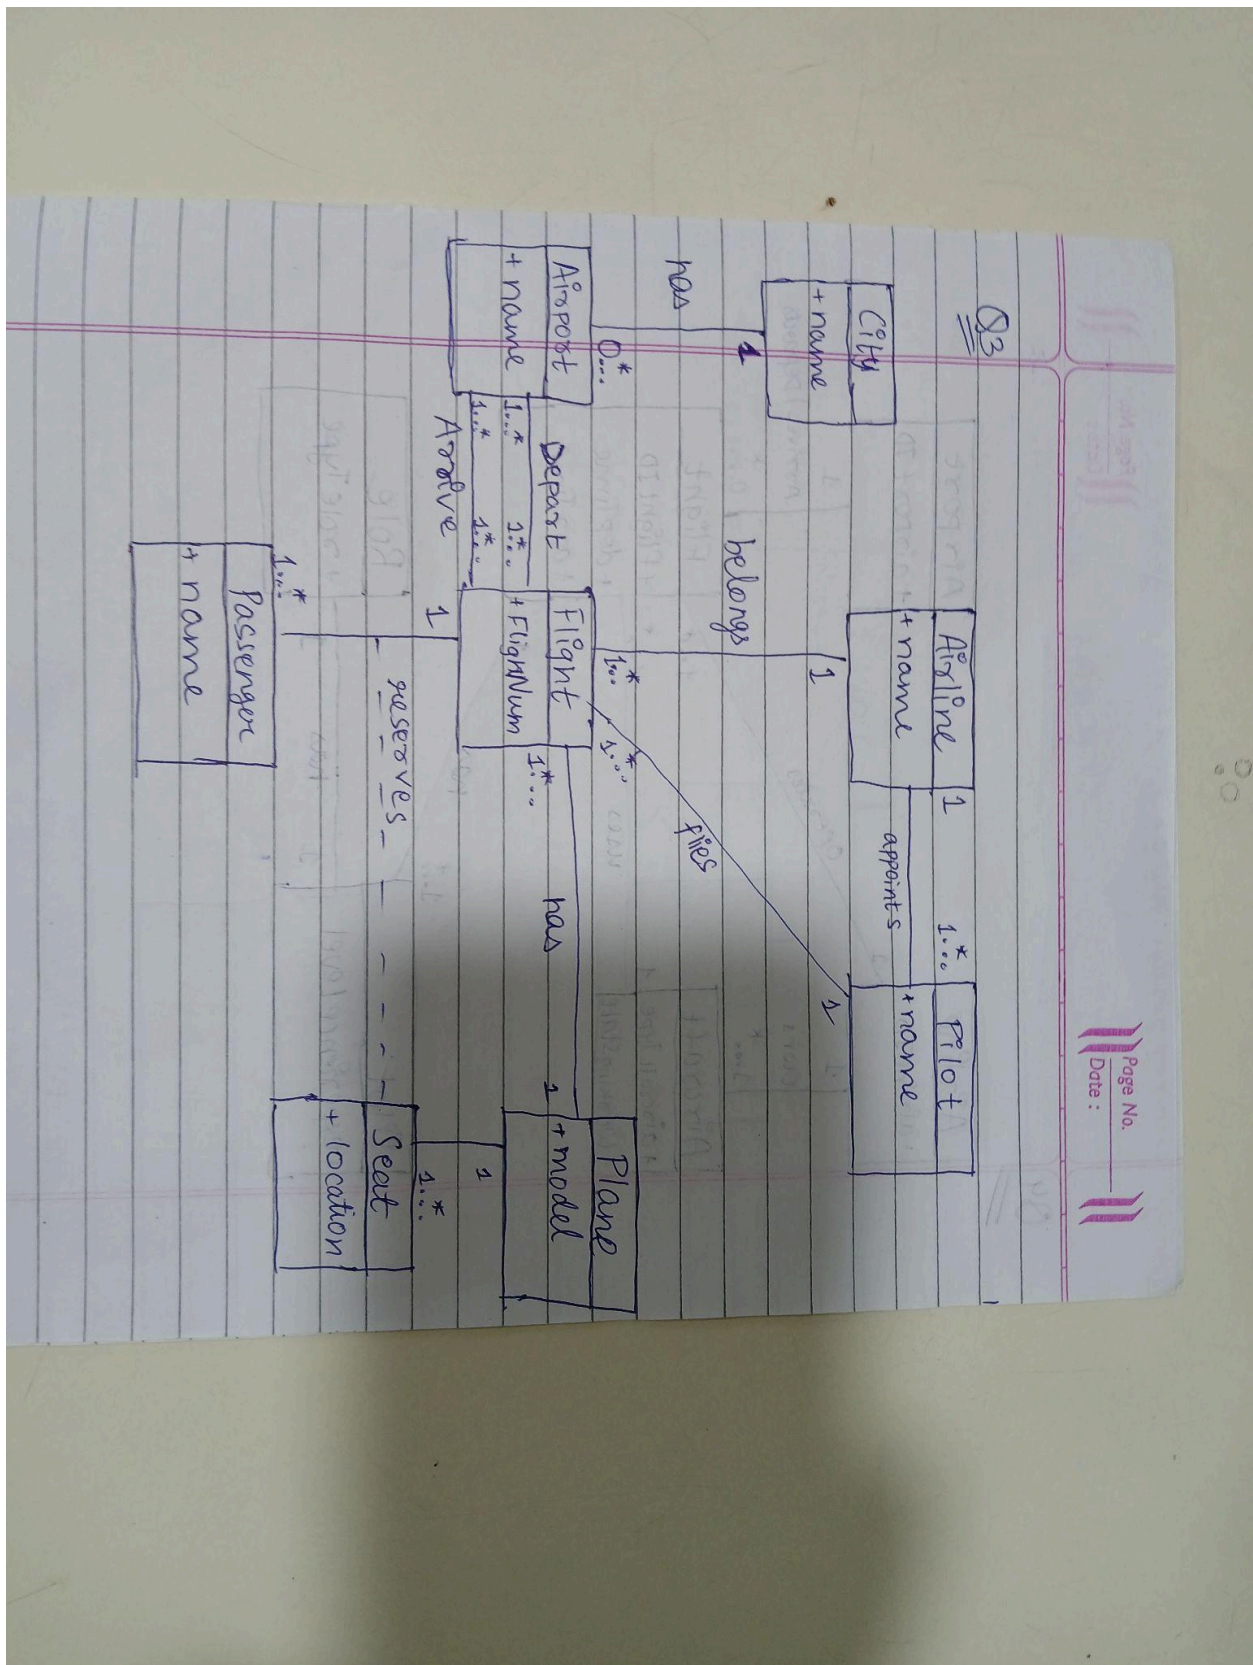 Page No.
Date :
Q3
City
+name
1
has
0...*
Airport
+ name
Depart
1...*
1...*
1...*
1...*
Arrive
Airline
+name
1
appoints
1...*
Pilot
+name
1
belongs
1...*
1
flies
1...*
Flight
+FlighNum
1...*
has
1
Plane
+model
1
1...*
Seat
+ location
1
reserves
1...*
Passenger
+ name